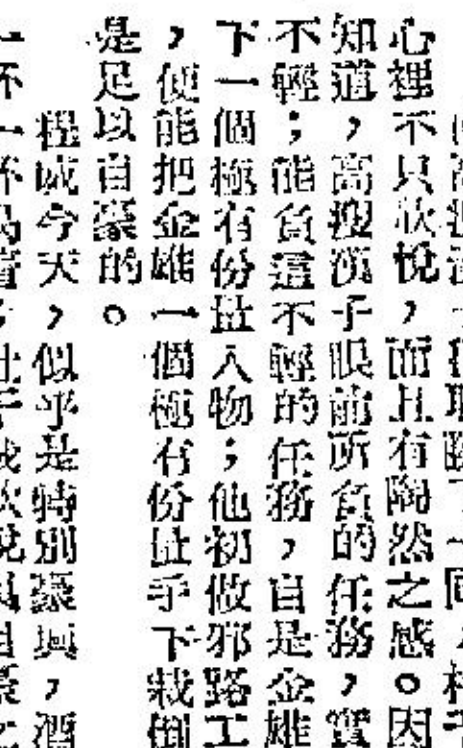 心裡不只欣悅，而且有陶然之感。因
知道，高瘦漢子眼前所負的任務，實
不輕；能負這不輕的任務，自是金雄
下一個極有份量人物；他初做邪路工
，便能把金雄一個極有份量手下栽倒
是足以自豪的。
程威今天，似乎是特別豪興，酒
一杯一杯